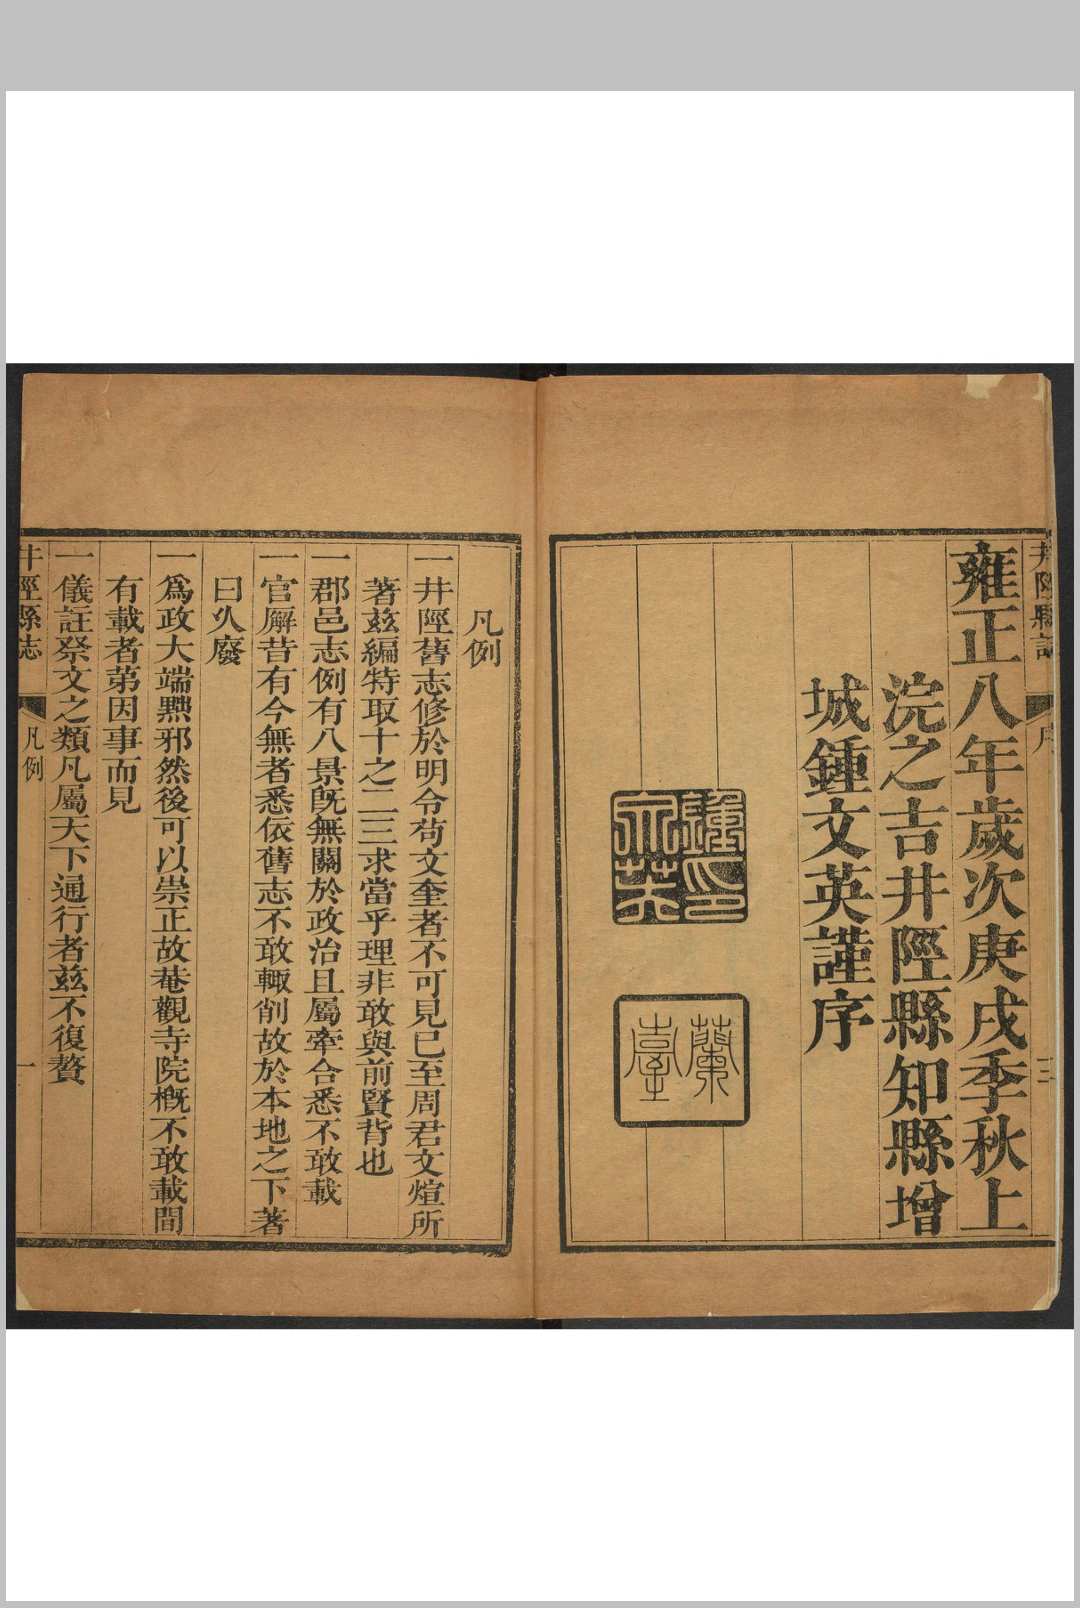 井陘縣志
序
三
雍正八年歲次庚戌季秋上
浣之吉井陘縣知縣增
城鍾文英謹序
鍾文英印
蘭臺
凡例
一井陘舊志修於明令苟文奎者不可見已至周君文煊所
著茲編特取十之二三求當乎理非敢與前賢背也
一郡邑志例有八景旣無關於政治且屬牽合悉不敢載
一官廨昔有今無者悉依舊志不敢輒削故於本地之下著
曰久廢
一爲政大端黜邪然後可以崇正故菴觀寺院槪不敢載間
有載者第因事而見
一儀註祭文之類凡屬天下通行者茲不復贅
井陘縣志
凡例
一